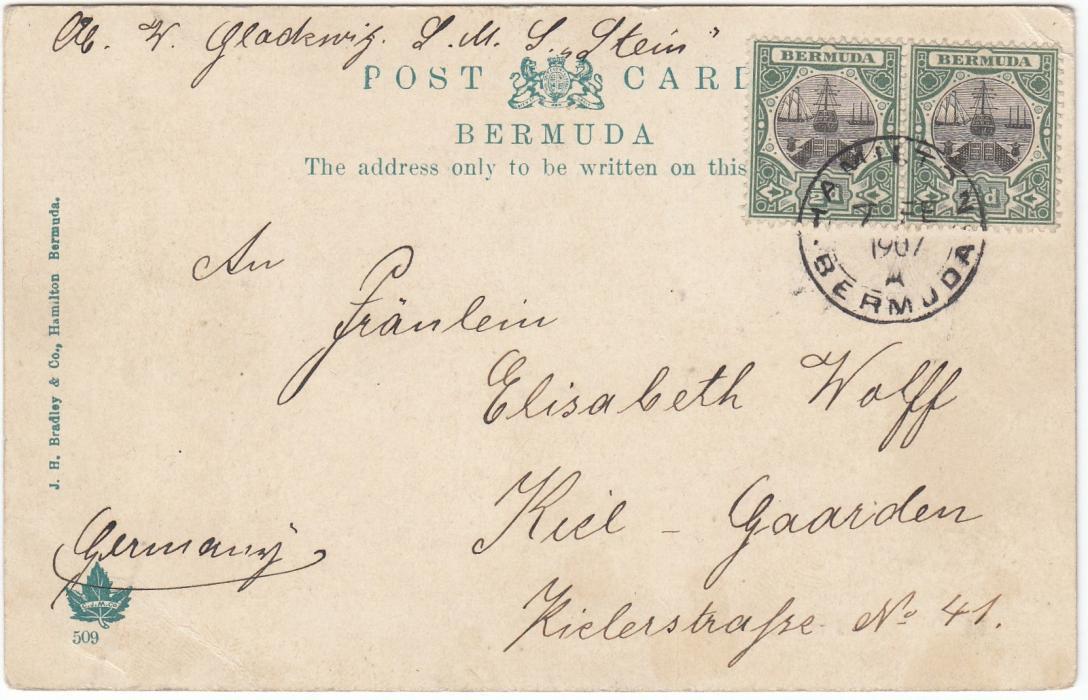 W. Gladewig. S. M. S. „Stein"
POST CARD
BERMUDA
The address only to be written on this
BERMUDA
BERMUDA
HAMILTON
7 FE
1907
A
BERMUDA
An
Fräulein
Elisabeth Wolff
Kiel - Gaarden
Kielerstraſse No 41.
Germany
J. H. Bradley & Co., Hamilton Bermuda.
509